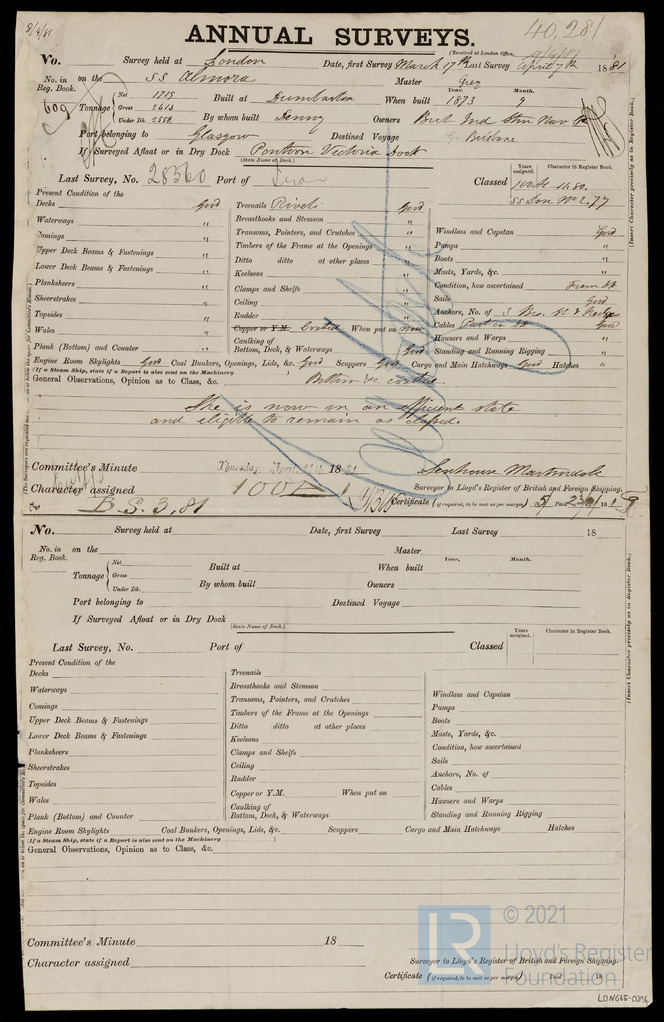 8/4/81
ANNUAL SURVEYS.
40,281
(Received at London Office,
No. Survey held at London Date, first Survey March 17th Last Survey April 7th 1881
No. in Reg. Book. on the SS Almora Master Grey
609
Tonnage Net 1715 Gross 2613 Under Dk. 2558 Built at Dumbarton When built Year. 1873 Month. 9
By whom built Denny Owners Brit Ind Stm Nav Co
Port belonging to Glasgow Destined Voyage Brisbane
If Surveyed Afloat or in Dry Dock Pontoon Victoria Dock
(State Name of Dock.)
Last Survey, No. 28560 Port of Iron
Classed
Years assigned.
Character in Register Book.
100A 11.80.
SS Lon No 2.77
(Insert Character precisely as in Register Book.)
Present Condition of the
Decks Good
Waterways "
Comings "
Upper Deck Beams & Fastenings "
Lower Deck Beams & Fastenings "
Planksheers "
Sheerstrakes "
Topsides "
Wales "
Plank (Bottom) and Counter "
Treenails Rivets Good
Breasthooks and Stemson "
Transoms, Pointers, and Crutches "
Timbers of the Frame at the Openings "
Ditto ditto at other places "
Keelsons "
Clamps and Shelfs "
Ceiling "
Rudder "
Copper or Y.M. Coated When put on now
Caulking of Bottom, Deck, & Waterways Good
Windlass and Capstan Good
Pumps "
Boats "
Masts, Yards, &c. "
Condition, how ascertained From Dk
Sails Good
Anchors, No. of 3
Cables Good
Hawsers and Warps "
Standing and Running Rigging "
Engine Room Skylights Good Coal Bunkers, Openings, Lids, &c. Good Scuppers Good Cargo and Main Hatchways Good Hatches "
(If a Steam Ship, state if a Report is also sent on the Machinery )
General Observations, Opinion as to Class, &c. Bottom &c coated
She is now in an efficient state
and eligible to remain as classed.
Committee's Minute Thursday, April 1881
Senhouse Martindale
Surveyor to Lloyd's Register of British and Foreign Shipping.
Character assigned 100A1
B.S. 3,81
Certificate (if required, to be sent as per margin) 5/ Paid
No. Survey held at Date, first Survey Last Survey 18
No. in Reg. Book. on the Master
Tonnage Net Gross Under Dk. Built at When built Year. Month.
By whom built Owners
Port belonging to Destined Voyage
If Surveyed Afloat or in Dry Dock
(State Name of Dock.)
Last Survey, No. Port of Classed
Years assigned.
Character in Register Book.
(Insert Character precisely as in Register Book.)
Present Condition of the
Decks
Waterways
Comings
Upper Deck Beams & Fastenings
Lower Deck Beams & Fastenings
Planksheers
Sheerstrakes
Topsides
Wales
Plank (Bottom) and Counter
Treenails
Breasthooks and Stemson
Transoms, Pointers, and Crutches
Timbers of the Frame at the Openings
Ditto ditto at other places
Keelsons
Clamps and Shelfs
Ceiling
Rudder
Copper or Y.M. When put on
Caulking of Bottom, Deck, & Waterways
Windlass and Capstan
Pumps
Boats
Masts, Yards, &c.
Condition, how ascertained
Sails
Anchors, No. of
Cables
Hawsers and Warps
Standing and Running Rigging
Engine Room Skylights Coal Bunkers, Openings, Lids, &c. Scuppers Cargo and Main Hatchways Hatches
(If a Steam Ship, state if a Report is also sent on the Machinery )
General Observations, Opinion as to Class, &c.
Committee's Minute 18
Character assigned
Surveyor to Lloyd's Register of British and Foreign Shipping.
Certificate (if required, to be sent as per margin) Paid 18
LR © 2021
Lloyd's Register
Foundation
LON665-0396